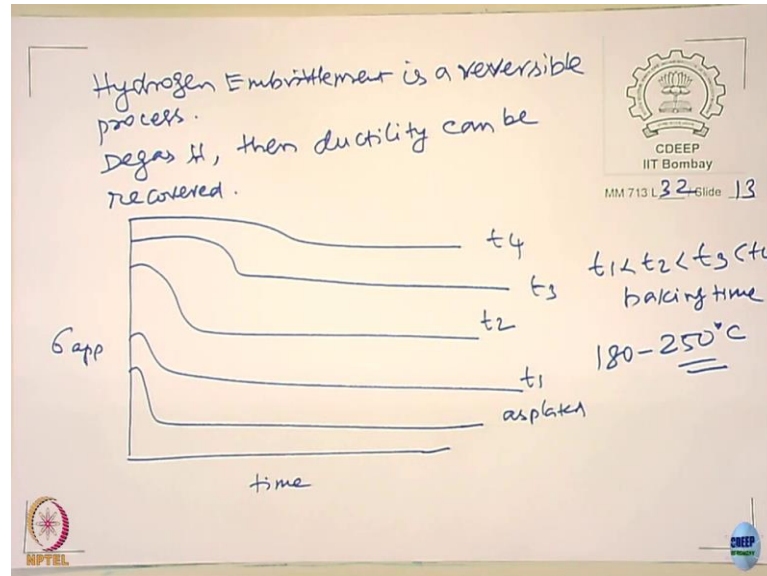 Hydrogen Embrittlement is a reversible
process.
Degas H, then ductility can be
recovered.
CDEEP
IIT Bombay
MM 713 L 32 Slide 13
t4
t3
t2
t1
as plated
σ app
time
t1 < t2 < t3 < t4
baking time
180-250°C
NPTEL
CDEEP